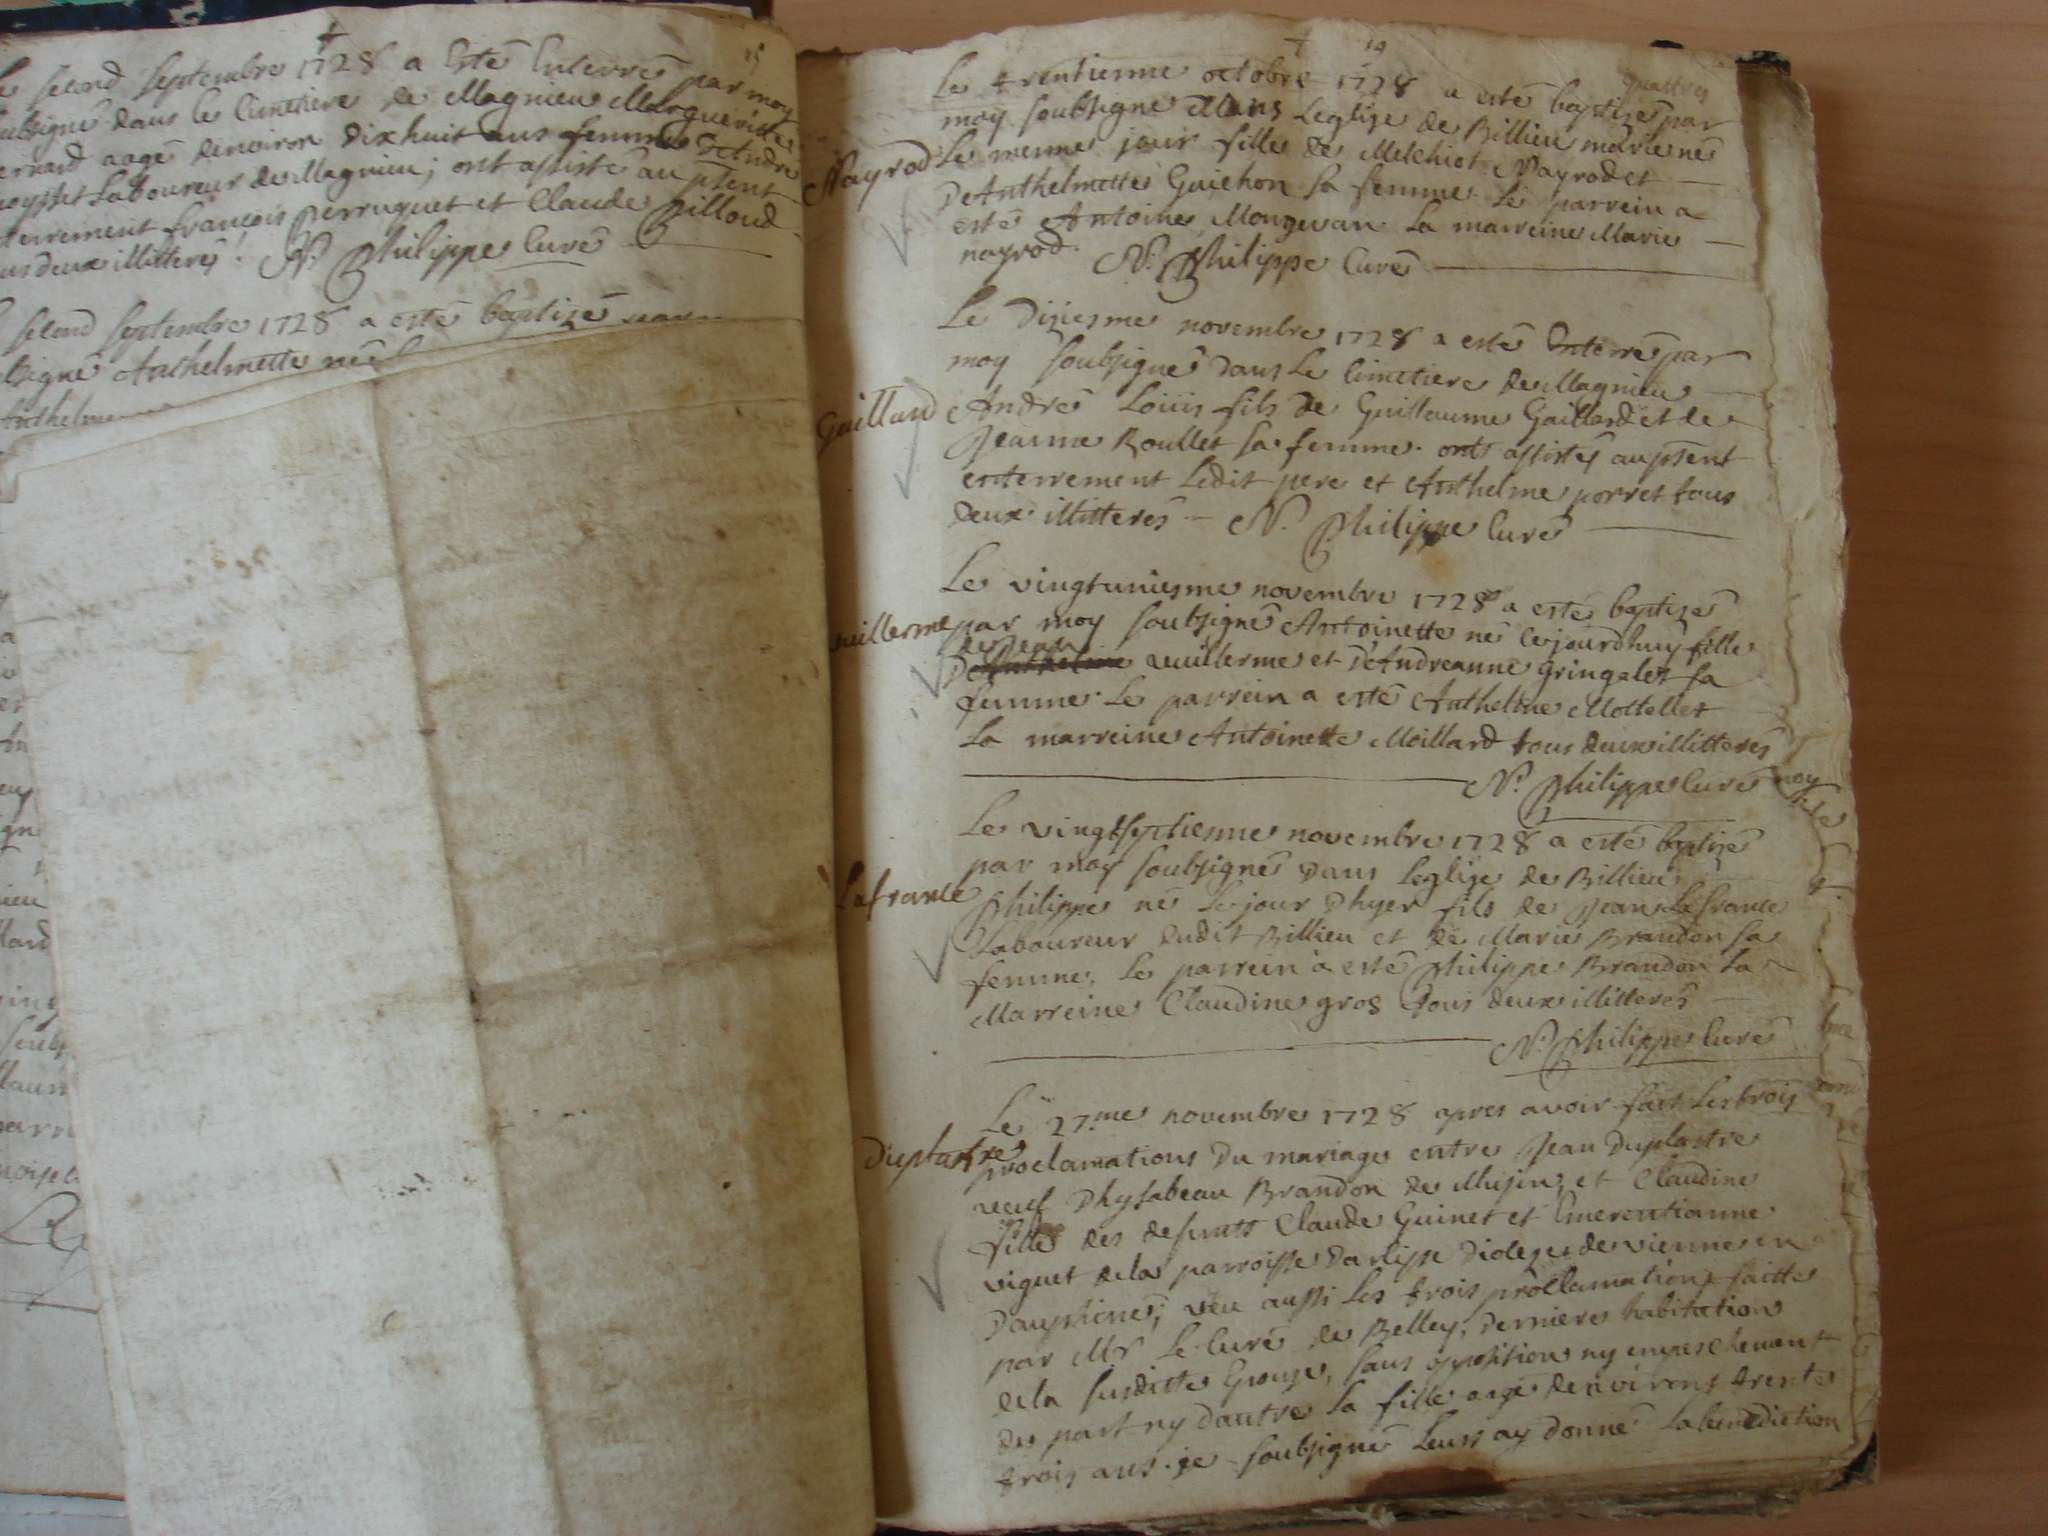 second septembre 1728 a esté Enterré par moy
soubsigné dans le Cimetiere de Magnieu Marguerite
Bernard aagé denviron dixhuit ans femme d'André
Laboureur de Magnieu; ont assisté au pŝent
enterrement francois perruquet et Claude Billoud
tous deux illitteres. N. Philippe Curé
second septembre 1728 a esté baptizé par
soubsigné Anthelmette née
15
19
quattres
Le trentienne octobre 1728 a esté baptizé par
moy soubsigné dans Leglize de Billieu marie né
Nayrod
Le menne jour fille de Melchiot Nayrod et
D'Anthelmette Guichon sa femme. Le parrein a
esté Antoine Mongevan la marreine Marie
nayrod. N. Philippe Curé
Le Diziesme novembre 1728 a esté Enterré par
moy soubsigné dans Le Cimetiere de Magnieu
Gaillard
André Loüis fils de Guillaume Gaillard et de
Jeanne Roullet sa femme. ont assistés au pŝent
enterrement Ledit pere et Anthelme porret tous
deux illitteres - N. Philippe Curé
Le vingtuniesme novembre 1728 a esté baptizé
vuillerme
par moy soubsigné Antoinette né cejourdhuy fille
de jean
vuillerme et D'Andreanne gringalet sa
femme. Le parrein a esté Anthelme Mottellet
La marreine Antoinette Moillard tous deux illitteres
N. Philippe Curé
Le vingtseptienne novembre 1728 a esté baptizé
par moy soubsigné dans Leglize de Billieu
Lafrance
Philippe né Le jour Dhyer fils de Jean Lafrance
Laboureur dudit Billieu et de Marie Brandon sa
femme, Le parrein a esté Philippe Brandon La
Marreine Claudine gros tous deux illitteres
N. Philippe Curé
Le 27.me novembre 1728 apres avoir fait Les trois
Duplastre
proclamations Du mariage entre Jean Duplastre
veuf Dhysabeau Brandon de Mujin, et Claudine
fille des defunts Claude Guinet et Emerentianne
viguet dela parroisse Darlisse Dioceze de vienne en
Dauphiné; veu aussi Les trois proclamations faitte
par Mr Le Curé de Belley, Derniere habitation
dela susditte Epouse, sans opposition ny empeschement
de part ny dautre La fille aagé denvirons trente
trois ans. je soubsigné Leurs ay donné La benediction